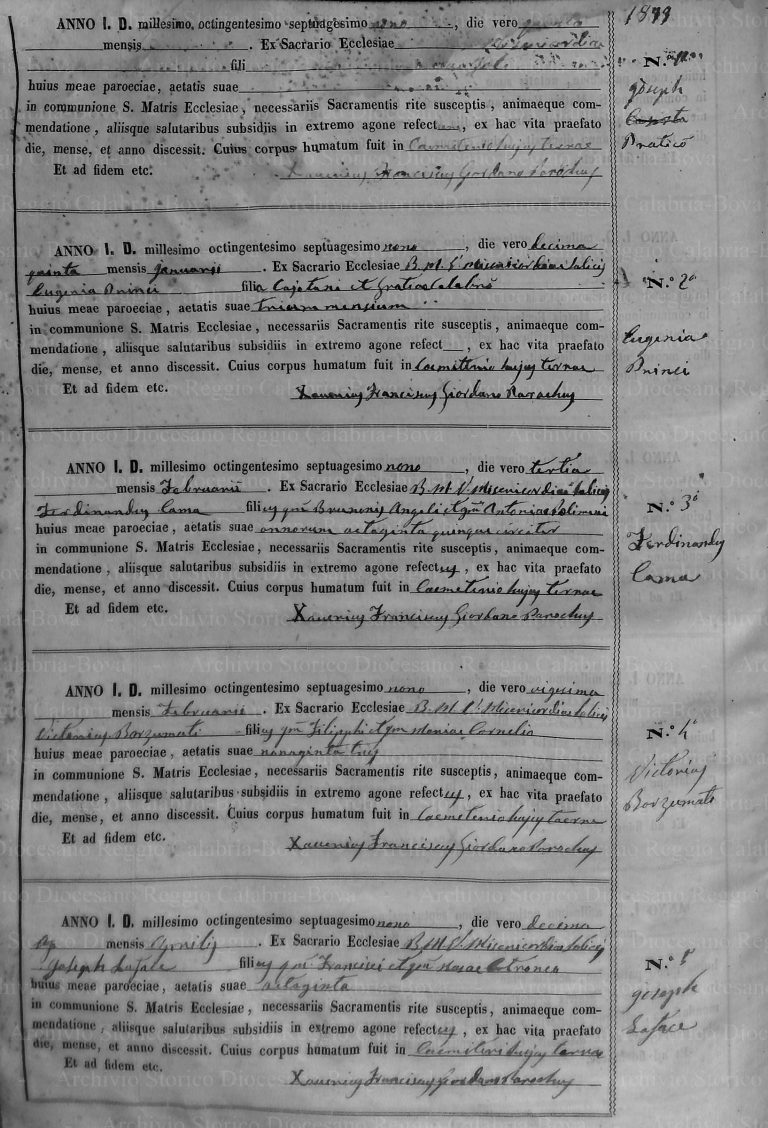 1879
ANNO I. D. millesimo, octingentesimo septuagesimo nono, die vero
mensis . Ex Sacrario Ecclesiae
fili
huius meae paroeciae, aetatis suae
in communione S. Matris Ecclesiae, necessariis Sacramentis rite susceptis, animaeque com-
mendatione, aliisque salutaribus subsidiis in extremo agone refect , ex hac vita praefato
die, mense, et anno discessit. Cuius corpus humatum fuit in Caemiterio hujus terrae
Et ad fidem etc. Xaverius Franciscus Giordano Parochus
Joseph
Praticò
ANNO I. D. millesimo octingentesimo septuagesimo nono, die vero decima
quinta mensis Januarii . Ex Sacrario Ecclesiae B. M. V. Misericordiae Salicis
Eugenia Princi filia Cajetani et Gratiae Calabrò
huius meae paroeciae, aetatis suae trium mensium
in communione S. Matris Ecclesiae, necessariis Sacramentis rite susceptis, animaeque com-
mendatione, aliisque salutaribus subsidiis in extremo agone refect , ex hac vita praefato
die, mense, et anno discessit. Cuius corpus humatum fuit in Caemiterio hujus terrae
Et ad fidem etc. Xaverius Franciscus Giordano Parochus
N.º 2º
Eugenia
Princi
ANNO I. D. millesimo octingentesimo septuagesimo nono, die vero tertia
mensis Februarii . Ex Sacrario Ecclesiae B. M. V. Misericordiae Salicis
Ferdinandus Cama filius qm Brunonis Angeli et qm Antoniae
huius meae paroeciae, aetatis suae annorum octaginta quinque circiter
in communione S. Matris Ecclesiae, necessariis Sacramentis rite susceptis, animaeque com-
mendatione, aliisque salutaribus subsidiis in extremo agone refectus, ex hac vita praefato
die, mense, et anno discessit. Cuius corpus humatum fuit in Caemeterio hujus terrae
Et ad fidem etc. Xaverius Franciscus Giordano Parochus
N.º 3º
Ferdinandus
Cama
ANNO I. D. millesimo octingentesimo septuagesimo nono, die vero vigesima
mensis Februarii . Ex Sacrario Ecclesiae B. M. V. Misericordiae Salicis
Victorius Borzumati filius qm Filippi et qm Mariae Cornelio
huius meae paroeciae, aetatis suae nonaginta
in communione S. Matris Ecclesiae, necessariis Sacramentis rite susceptis, animaeque com-
mendatione, aliisque salutaribus subsidiis in extremo agone refectus, ex hac vita praefato
die, mense, et anno discessit. Cuius corpus humatum fuit in Caemeterio hujus
Et ad fidem etc. Xaverius Franciscus Giordano Parochus
N.º 4º
Victorius
Borzumati
ANNO I. D. millesimo octingentesimo septuagesimo nono, die vero decima
mensis Aprilis . Ex Sacrario Ecclesiae B. M. V. Misericordiae Salicis
Joseph Laface filius qm Francisci et qm Cotroneo
huius meae paroeciae, aetatis suae octaginta
in communione S. Matris Ecclesiae, necessariis Sacramentis rite susceptis, animaeque com-
mendatione, aliisque salutaribus subsidiis in extremo agone refectus, ex hac vita praefato
die, mense, et anno discessit. Cuius corpus humatum fuit in Caemiterio hujus terrae
Et ad fidem etc. Xaverius Franciscus Giordano Parochus
N.º 5
Joseph
Laface
Archivio Storico Diocesano Reggio Calabria-Bova